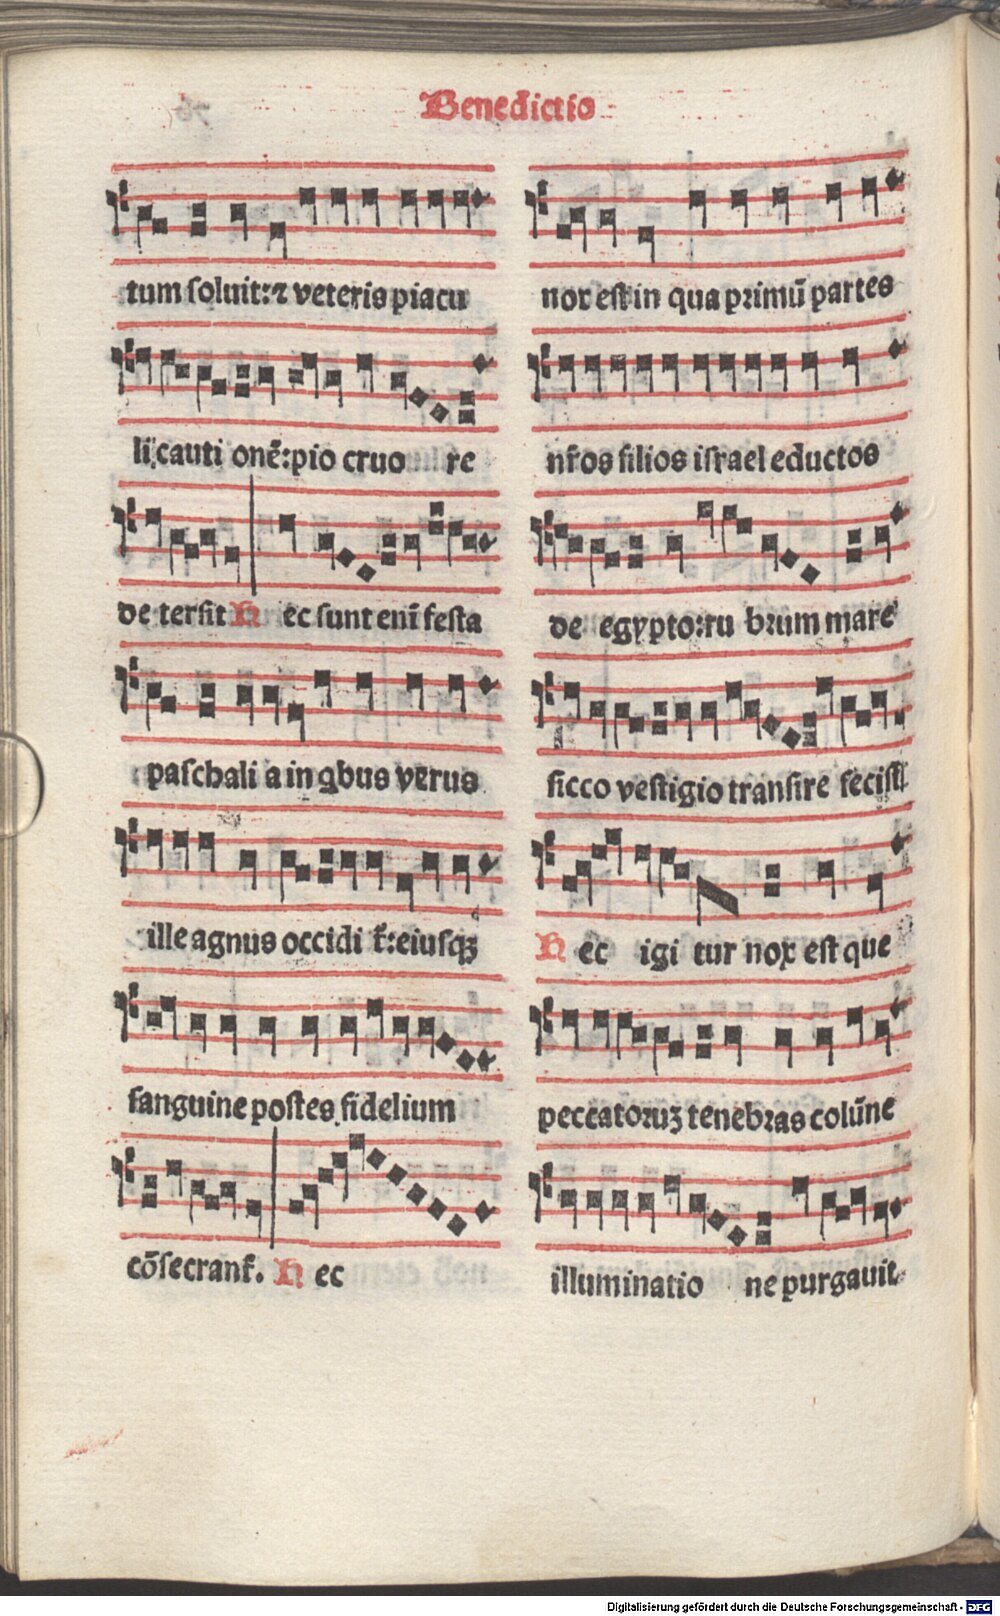 Benedictio
tum soluit: ⁊ veteris piacu
li cauti onē: pio cruo re
de tersit Hec sunt enī festa
paschali a in qbus verus
ille agnus occidi t̄: eiusqꝫ
sanguine postes fidelium
cōsecrant̄. Hec
nox est in qua primū partes
nr̄os filios israel eductos
de egypto: ru brum mare
sicco vestigio transire fecisti
Hec igi tur nox est que
peccatoruꝫ tenebras colūne
illuminatio ne purgauit.
Digitalisierung gefördert durch die Deutsche Forschungsgemeinschaft - DFG